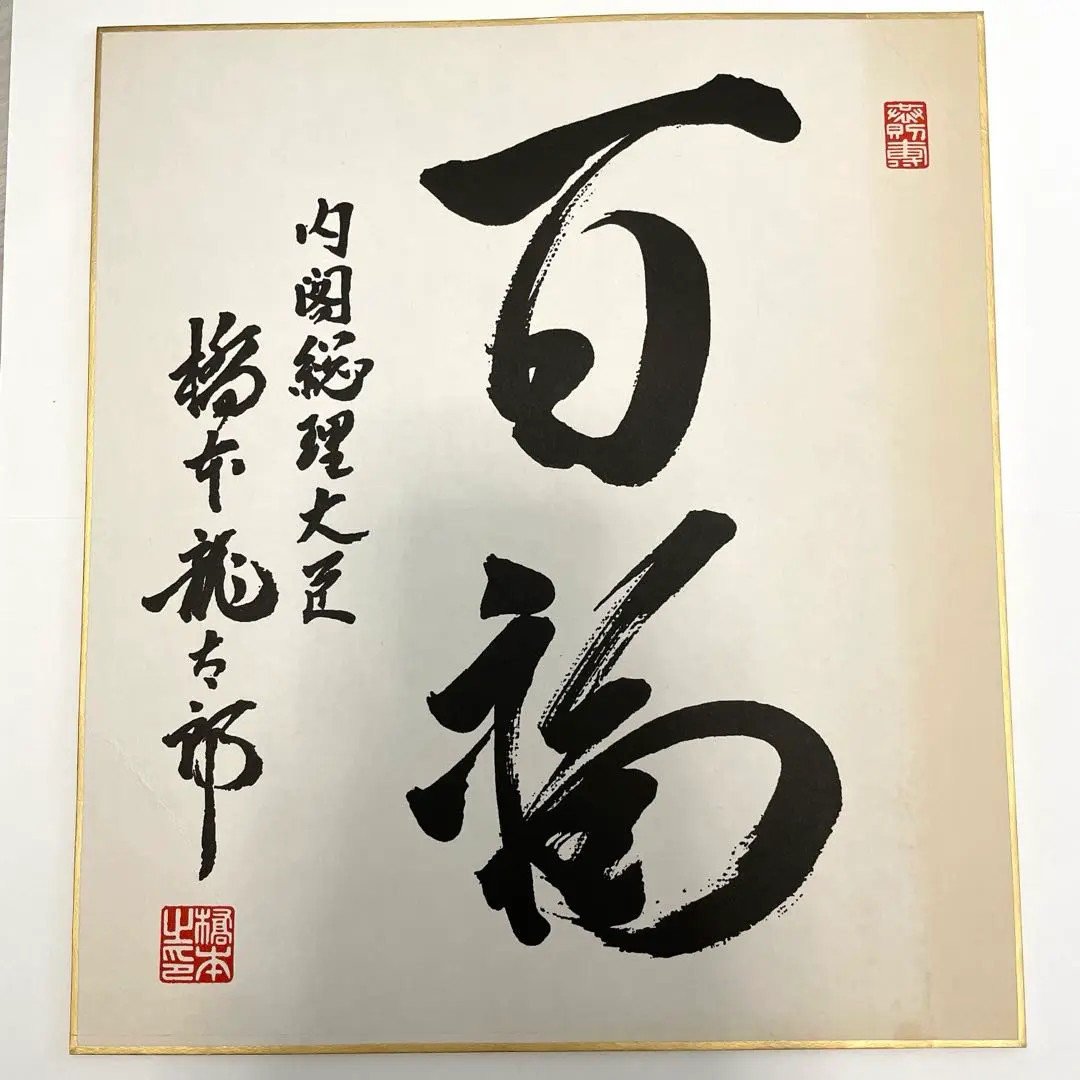 百福
内閣総理大臣
橋本龍太郎
橋本之印